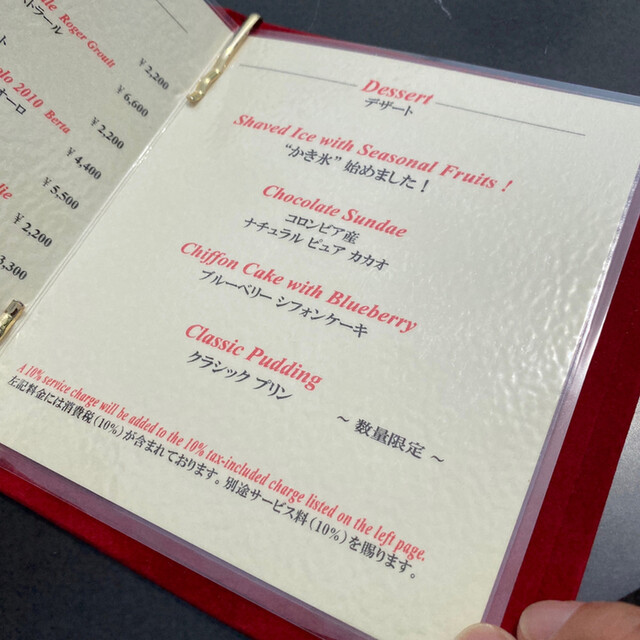 le Roger Groult
トラール
¥2,200
¥6,600
ト
olo 2010 Berta
オーロ
¥2,200
¥4,400
¥5,500
lie
¥2,200
3,300
Dessert
デザート
Shaved Ice with Seasonal Fruits !
“かき氷” 始めました！
Chocolate Sundae
コロンビア産
ナチュラル ピュア カカオ
Chiffon Cake with Blueberry
ブルーベリー シフォンケーキ
Classic Pudding
クラシック プリン
～ 数量限定 ～
A 10% service charge will be added to the 10% tax-included charge listed on the left page.
左記料金には消費税（10%）が含まれております。別途サービス料（10%）を賜ります。